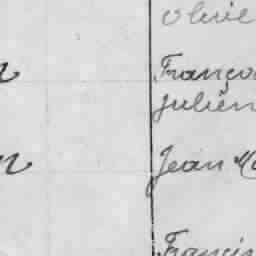 Olivie
Franço
julien
Jean M
Francis